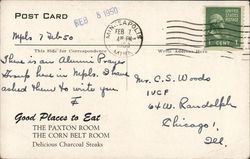 POST CARD
FEB 8 1950
MINNEAPOLIS
FEB 7
PM
MINN.
1 CENT 1
Mpls 7 Feb-50
This Side for Correspondence
Write Address Here
There is an Alumni Prayer
Group here in Mpls. I have
asked them to write you
Mr. C. S. Woods
IVCF
64 W. Randolph
Chicago 1,
Ill.
Good Places to Eat
THE PAXTON ROOM
THE CORN BELT ROOM
Delicious Charcoal Steaks